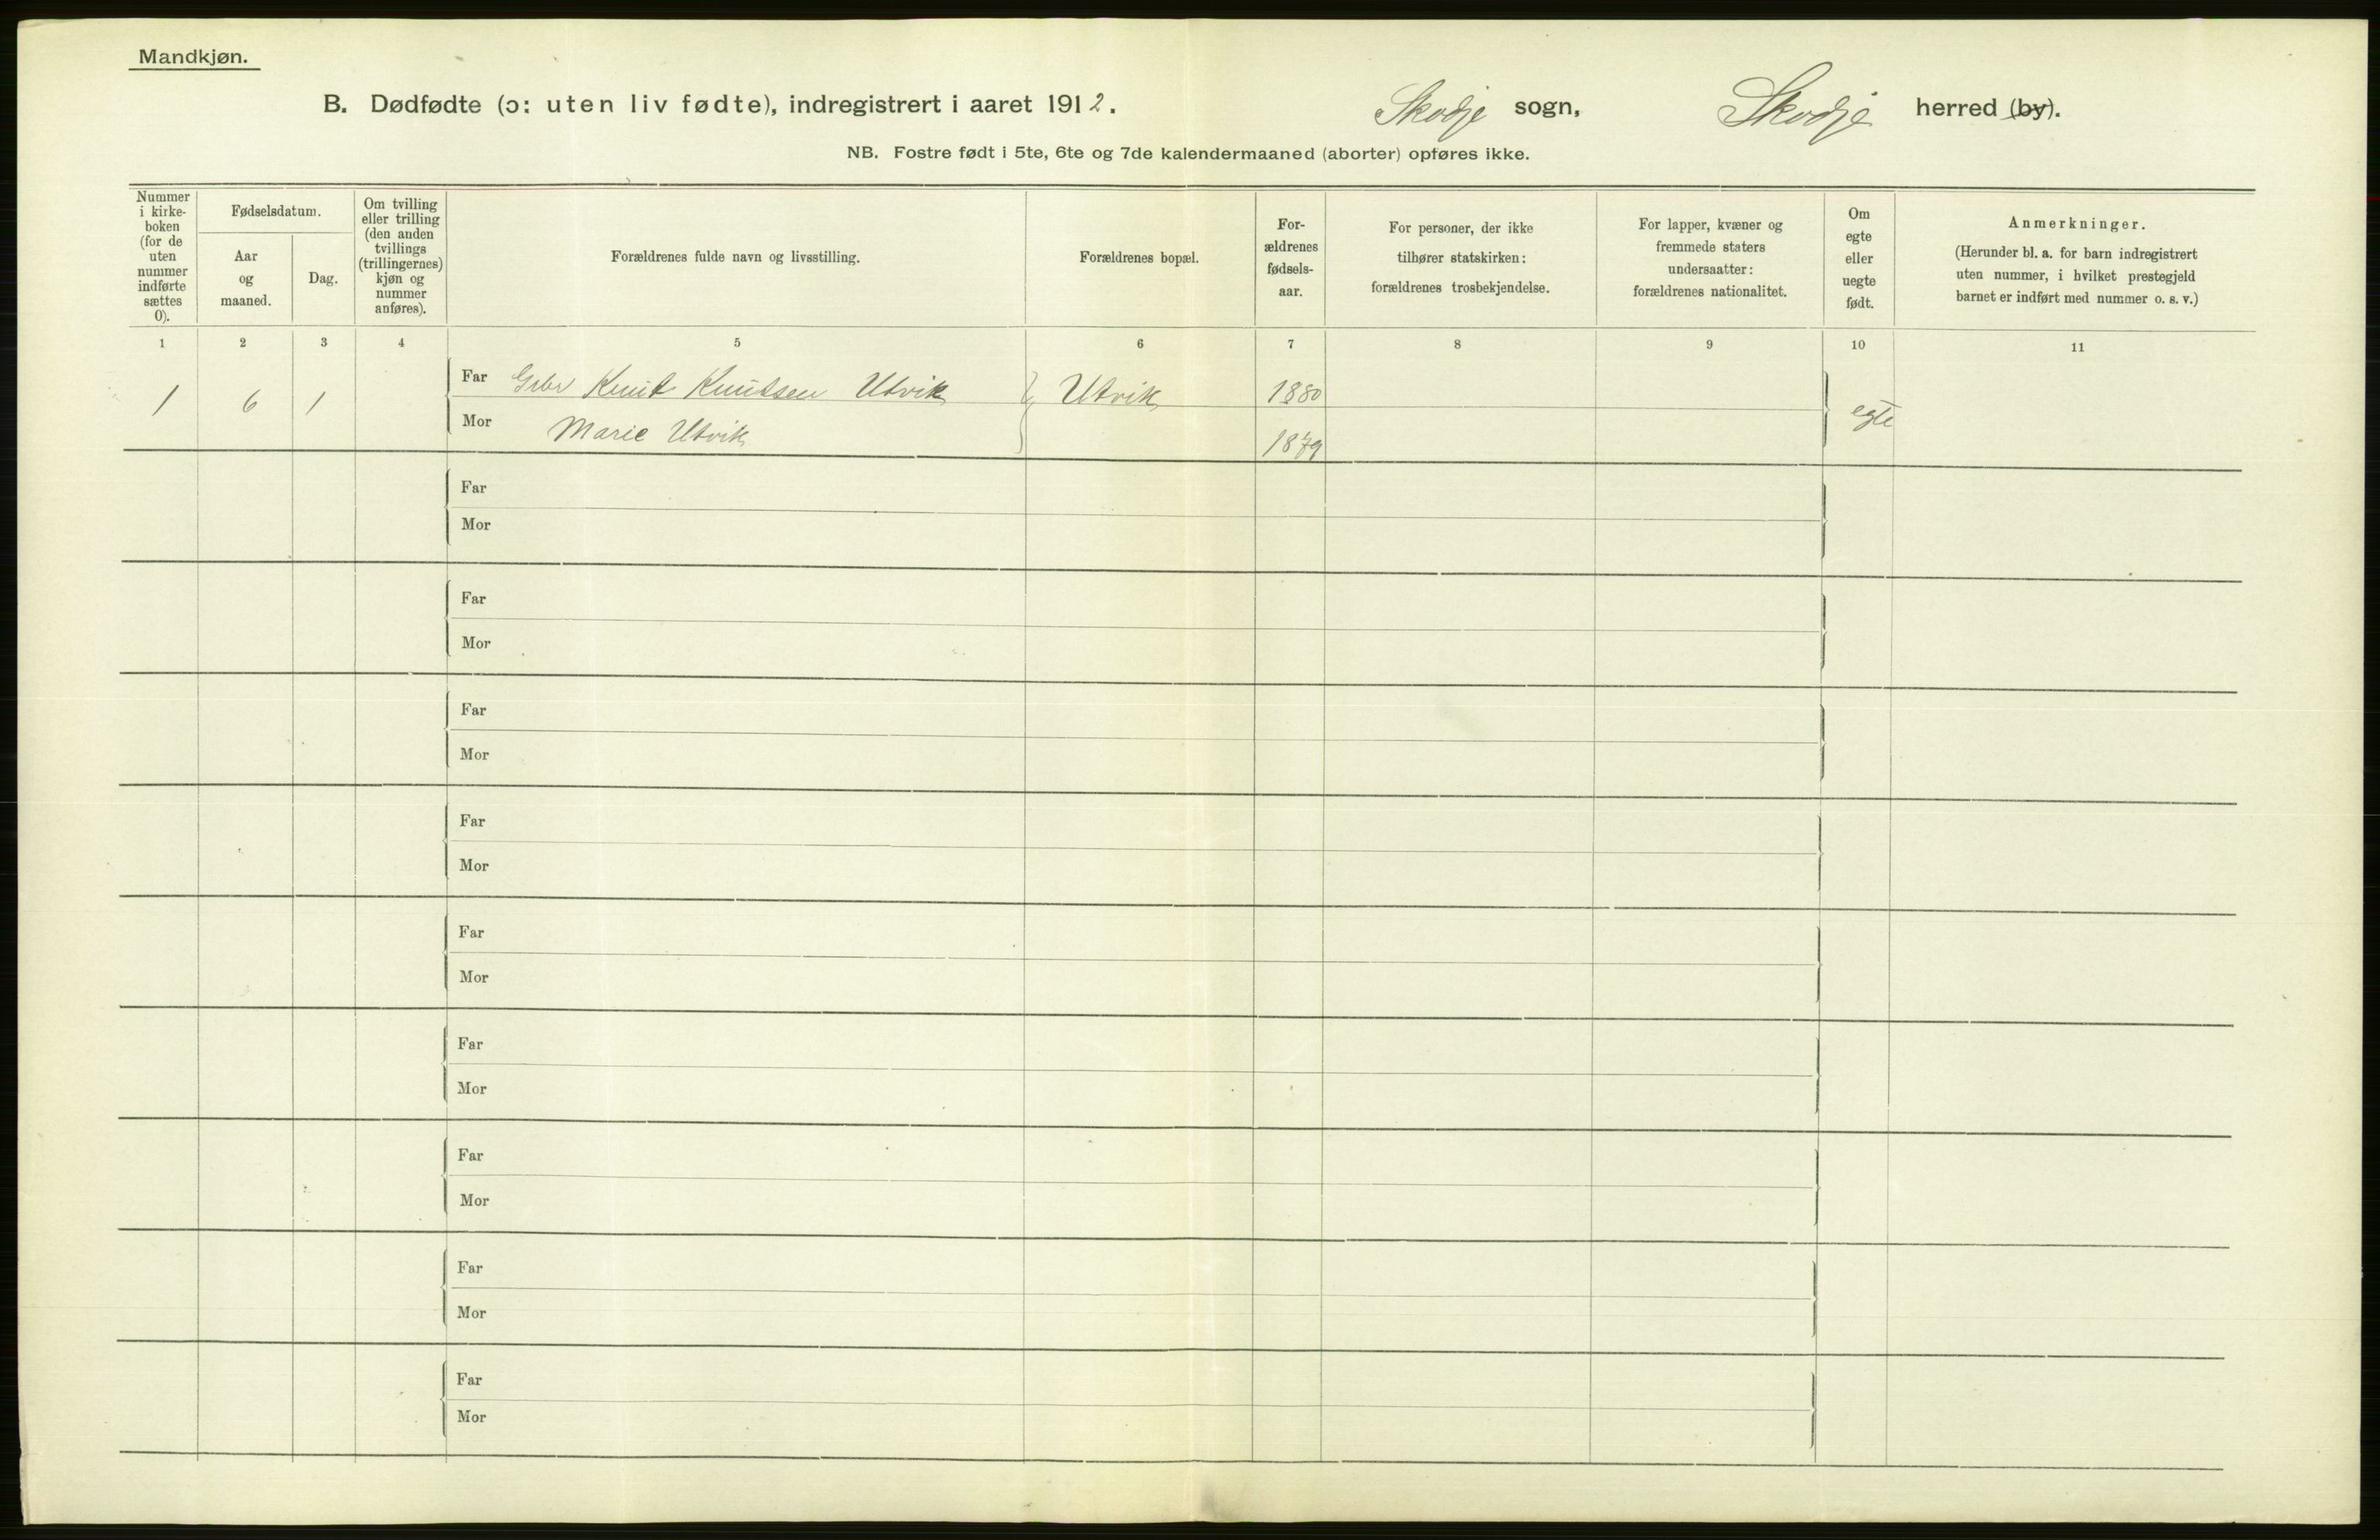 Mandkjøn.
B. Dødfødte (ɔ: uten liv fødte), indregistrert i aaret 1912. Skodje sogn, Skodje herred (by).
NB. Fostre født i 5te, 6te og 7de kalendermaaned (aborter) opføres ikke.
Nummer
i kirke-
boken
(for de
uten
nummer
indførte
sættes
0).
Fødselsdatum.
Aar
og
maaned.
Dag.
Om tvilling
eller trilling
(den anden
tvillings
(trillingernes)
kjøn og
nummer
anføres).
Forældrenes fulde navn og livsstilling.
Forældrenes bopæl.
For-
ældrenes
fødsels-
aar.
For personer, der ikke
tilhører statskirken:
forældrenes trosbekjendelse.
For lapper, kvæner og
fremmede staters
undersaatter:
forældrenes nationalitet.
Om
egte
eller
uegte
født.
Anmerkninger.
(Herunder bl. a. for barn indregistrert
uten nummer, i hvilket prestegjeld
barnet er indført med nummer o. s. v.)
1 2 3 4 5 6 7 8 9 10 11
1 6 1 Far Gbr Knut Knutsen Utvik Utvik 1880 egte
Mor Marie Utvik 1879
Far
Mor
Far
Mor
Far
Mor
Far
Mor
Far
Mor
Far
Mor
Far
Mor
Far
Mor
Far
Mor